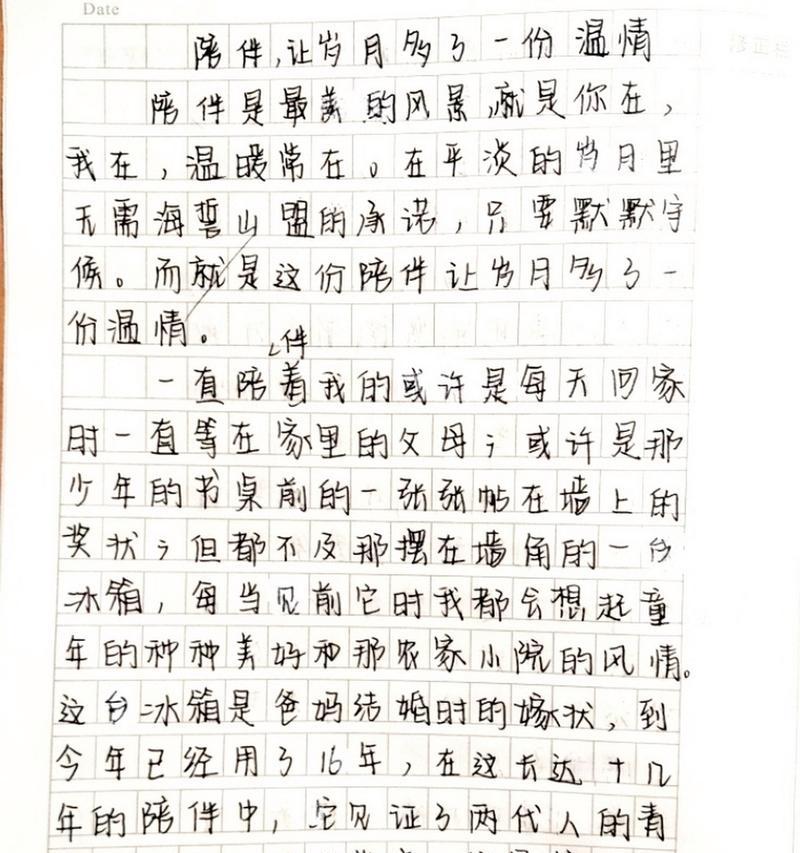 Date
陪伴,让岁月多了一份温情
陪伴是最美的风景,就是你在,
我在,温暖常在。在平淡的岁月里
无需海誓山盟的承诺,只要默默守
候。而就是这份陪伴让岁月多了一
份温情。
伴
一直陪着我的或许是每天回家
时一直等在家里的父母;或许是那
少年的书桌前的一张张帖在墙上的
奖状;但都不及那摆在墙角的一台
冰箱,每当见前它时我都会想起童
年的种种美好和那农家小院的风情。
这台冰箱是爸妈结婚时的嫁状,到
今年已经用了16年,在这长达十几
年的陪伴中,它见证了两代人的青